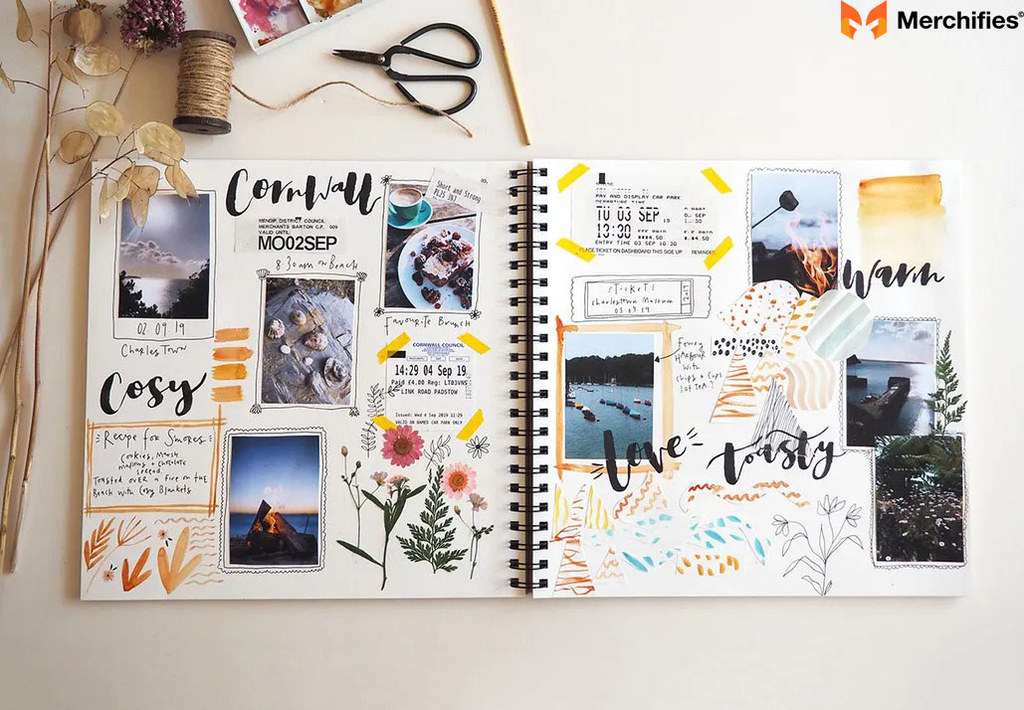 Merchifies®
Cornwall
MENDIP DISTRICT COUNCIL
MERCHANTS BARTON C.P. 009
VALID UNTIL
MO02SEP
8.30am on Beach
Short and Strong
02 09 19
Charles Town
Favourite Brunch
Cosy
Recipe for Smores
Cookies, Marsh
mallows + chocolate
spread.
Toasted over a fire on the
Beach with Cosy Blankets
CORNWALL COUNCIL
14:29 04 Sep 19
Paid £4.00 Reg: LT03VNS
LINK ROAD PADSTOW
Issued: Wed 4 Sep 2019 11:29
VALID ON NAMED CAR PARK ONLY
PAY AND DISPLAY CAR PARK
DEPARTURE TIME
TU 03 SEP 19
13:30
ENTRY TIME 03 SEP 10.30
PLACE TICKET ON DASHBOARD THIS SIDE UP
TICKETS
Charlestown Museum
03.09.19
Warm
Fowey
Harbour
with
chips + Cups
of tea
Love
toasty